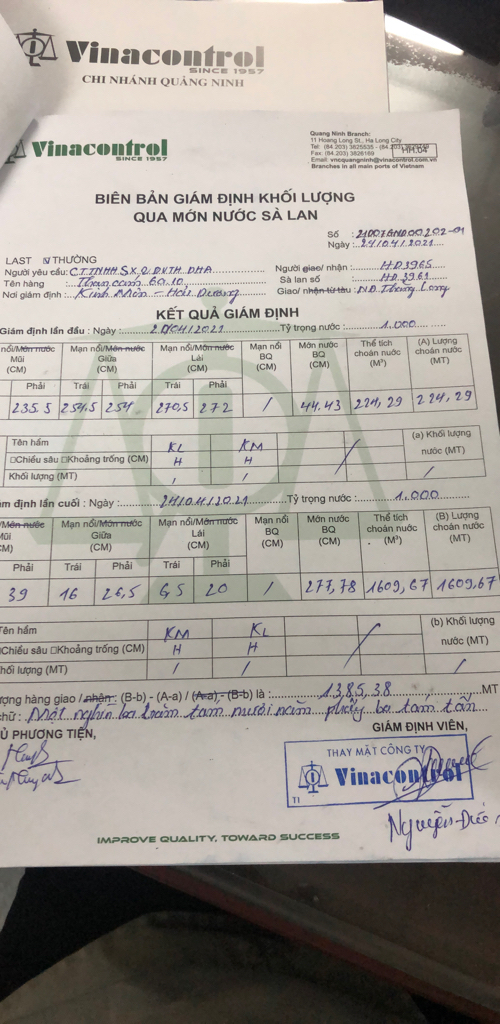 Vinacontrol
SINCE 1957
CHI NHÁNH QUẢNG NINH
Vinacontrol
SINCE 1957
Quang Ninh Branch:
11 Hoang Long St., Ha Long City
Tel: (84.203) 3825535 - (84.203)
Fax: (84.203) 3826169
HH.04
Email: vncquangninh@vinacontrol.com.vn
Branches in all main ports of Vietnam
BIÊN BẢN GIÁM ĐỊNH KHỐI LƯỢNG
QUA MỚN NƯỚC SÀ LAN
Số :
Ngày : 24/04/2021
LAST THƯỜNG
Người yêu cầu: C.T.TNHH S.X & DVTH DHA
Người giao/ nhận : HD3965
Tên hàng : Than cám 6a.10
Sà lan số : HD 3961
Nơi giám định : Kinh Môn - Hải Dương
Giao/ nhận từ tàu : NĐ Thăng Long
KẾT QUẢ GIÁM ĐỊNH
Giám định lần đầu : Ngày : 2 /04/2021 Tỷ trọng nước : 1.000
nổi/Mớn nước Mũi (CM) Mạn nổi/Mớn nước Giữa (CM) Mạn nổi/Mớn nước Lái (CM) Mạn nổi BQ (CM) Mớn nước BQ (CM) Thể tích choán nước (M³) (A) Lượng choán nước (MT)
Phải Trái Phải Trái Phải
235.5 254,5 254 270,5 272 / 44.43 224,29 224,29
Tên hầm KL KM (a) Khối lượng nước (MT)
□Chiều sâu □Khoảng trống (CM) H H
Khối lượng (MT) / / /
ám định lần cuối : Ngày : 24/04/2021 Tỷ trọng nước : 1.000
/Mớn nước Mũi CM) Mạn nổi/Mớn nước Giữa (CM) Mạn nổi/Mớn nước Lái (CM) Mạn nổi BQ (CM) Mớn nước BQ (CM) Thể tích choán nước (M³) (B) Lượng choán nước (MT)
Phải Trái Phải Trái Phải
39 16 26,5 6,5 20 / 277,78 1609,67 1609,67
Tên hầm KM KL (b) Khối lượng nước (MT)
□Chiều sâu □Khoảng trống (CM) H H
hối lượng (MT) / / /
ượng hàng giao / nhận : (B-b) - (A-a) / (A-a) - (B-b) là : 1385,38 MT
chữ : Một nghìn ba trăm tám mười năm phẩy ba tám tấn
Ủ PHƯƠNG TIỆN,
GIÁM ĐỊNH VIÊN,
THAY MẶT CÔNG TY
Vinacontrol
TI
Nguyễn Đức
IMPROVE QUALITY, TOWARD SUCCESS